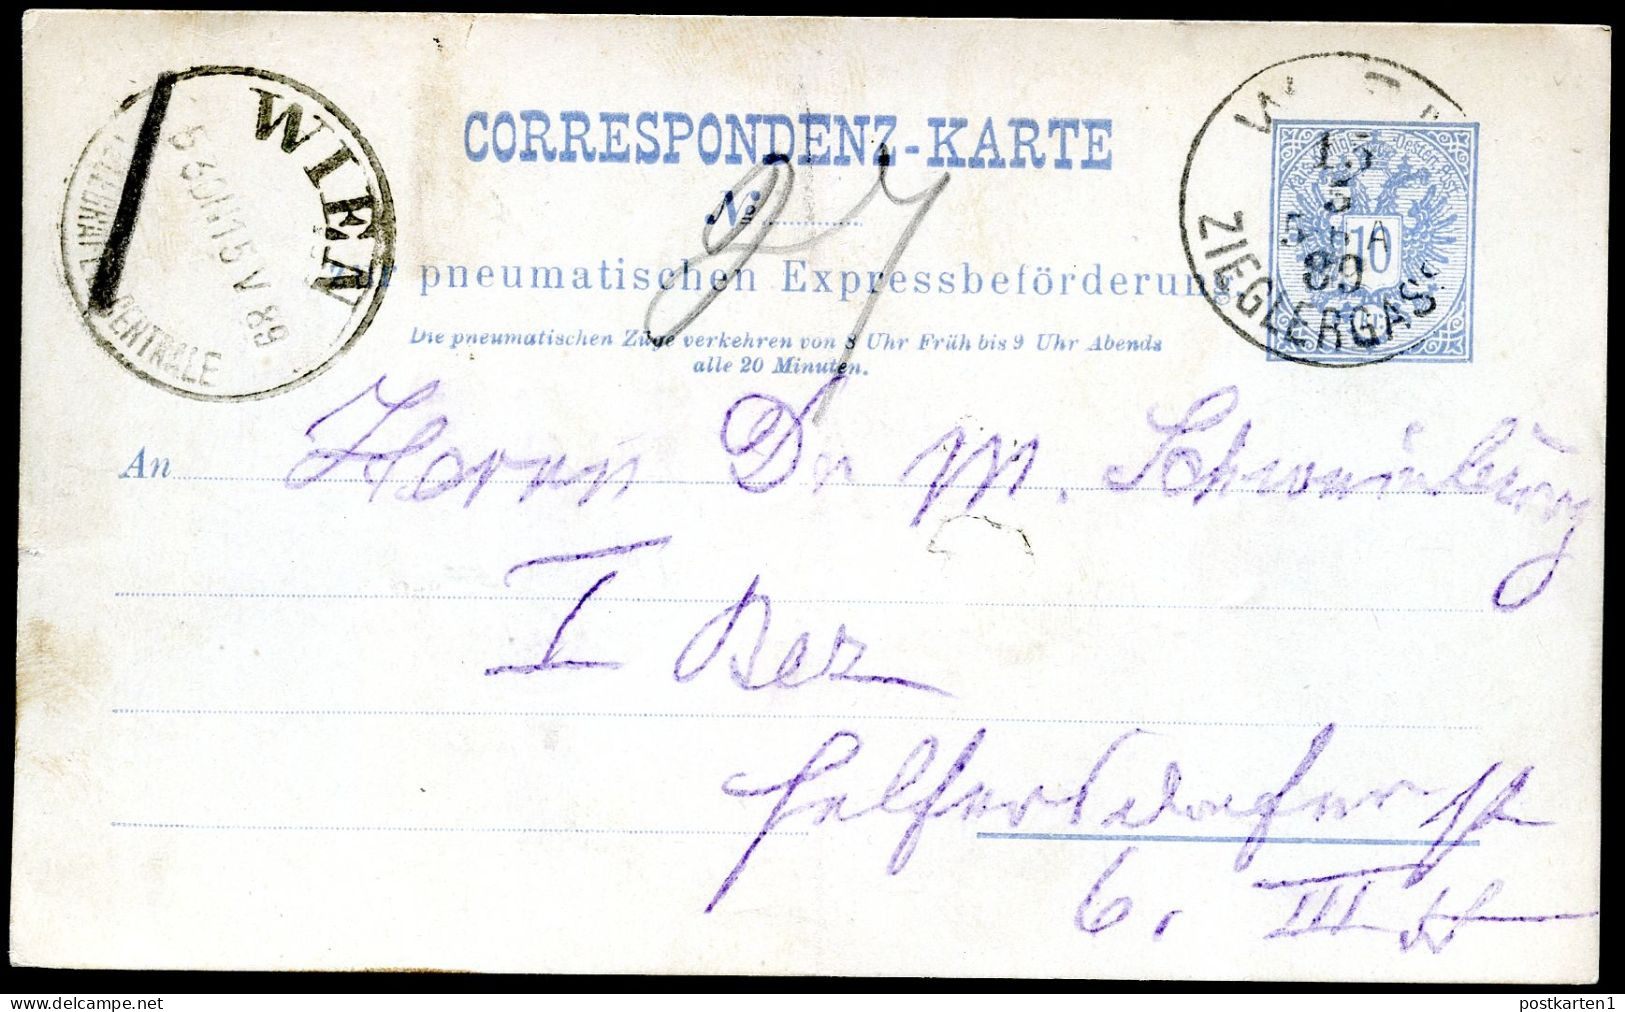 CORRESPONDENZ-KARTE
№
27
zur pneumatischen Expressbeförderung.
Die pneumatischen Züge verkehren von 8 Uhr Früh bis 9 Uhr Abends
alle 20 Minuten.
WIEN
5 30 N 15 V 89
13
5
89
ZIEGLERGASS
10
An Herrn Dr M. Schweinburg
I Bez
Seilerstätte
6. III St
postkarten1